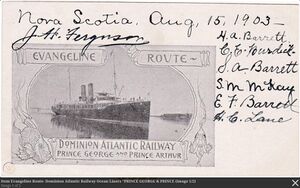 Nova Scotia, Aug, 15, 1903-
J. H. Ferguson
H. A. Barrett
C. E. Burdick
J. A. Barrett
S. M. McKay
E. F. Barrett
H. C. Lane
EVANGELINE ROUTE-
DOMINION ATLANTIC RAILWAY
PRINCE GEORGE AND PRINCE ARTHUR
Item Evangeline Route- Dominion Atlantic Railway Ocean Liners "PRINCE GEORGE & PRINCE (Image 1/2)
Image 1 of 2